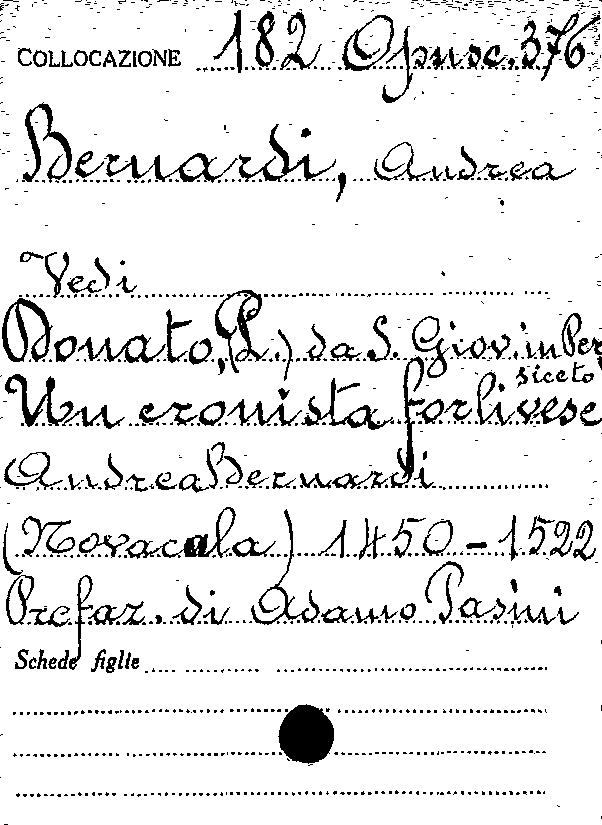 COLLOCAZIONE 182 Opusc. 376
Bernardi, Andrea
Vedi
Donato, (P.) da S. Giov. in Per
siceto
Un cronista forlivese
Andrea Bernardi
(Novacula) 1450-1522
Prefaz. di Adamo Pasini
Schede figlie